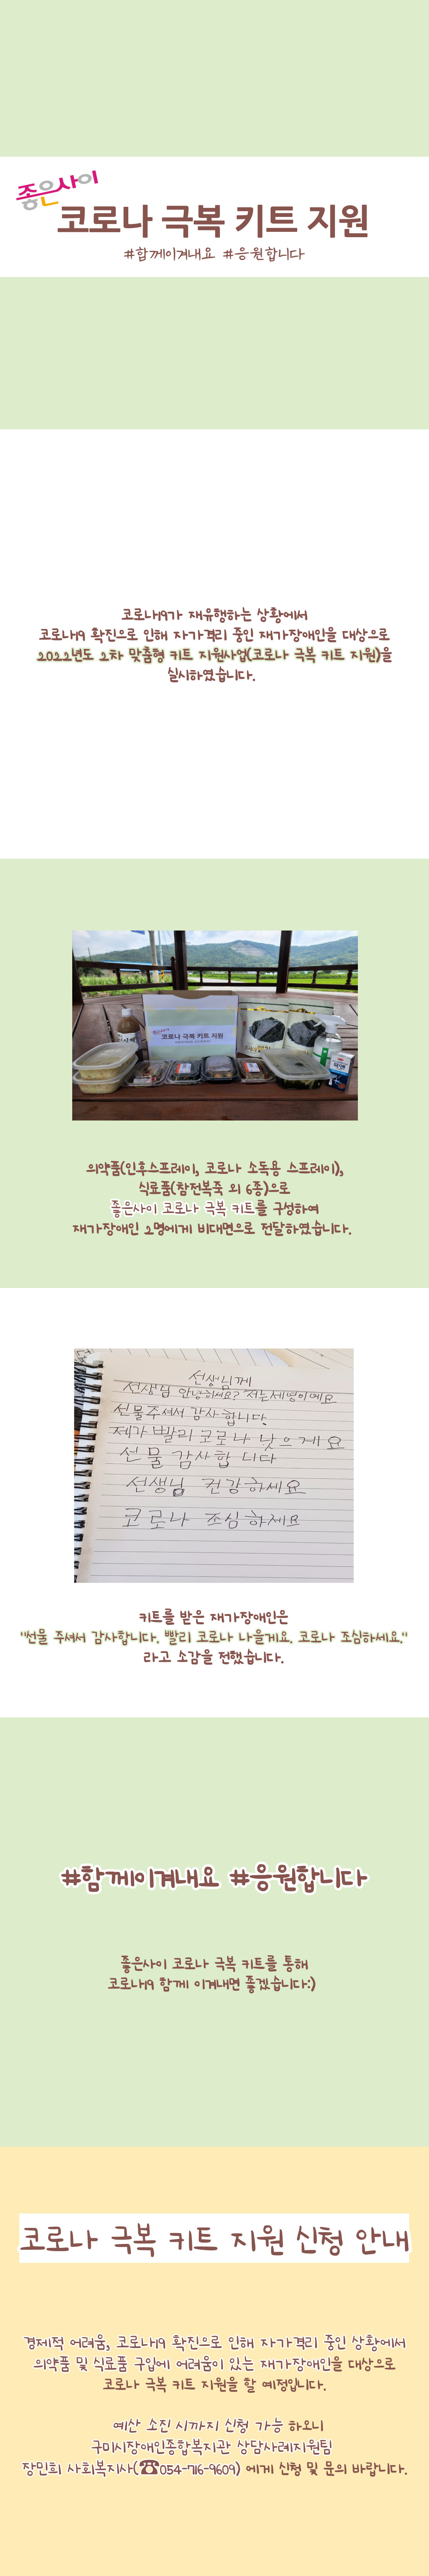 좋은사이
코로나 극복 키트 지원
#함께이겨내요 #응원합니다
코로나19가 재유행하는 상황에서
코로나19 확진으로 인해 자가격리 중인 재가장애인을 대상으로
2022년도 2차 맞춤형 키트 지원사업(코로나 극복 키트 지원)을
실시하였습니다.
코로나 극복 키트 지원
의약품(인후스프레이, 코로나 소독용 스프레이),
식료품(참전복죽 외 6종)으로
좋은사이 코로나 극복 키트를 구성하여
재가장애인 2명에게 비대면으로 전달하였습니다.
선생님께
선생님 안녕하세요? 저는세영이에요
선물주셔서 감사합니다.
제가 빨리 코로나 낫으게요
선물 감사합니다
선생님 건강하세요
코로나 조심하세요
키트를 받은 재가장애인은
"선물 주셔서 감사합니다. 빨리 코로나 나을게요. 코로나 조심하세요."
라고 소감을 전했습니다.
#함께이겨내요 #응원합니다
좋은사이 코로나 극복 키트를 통해
코로나19 함께 이겨내면 좋겠습니다:)
코로나 극복 키트 지원 신청 안내
경제적 어려움, 코로나19 확진으로 인해 자가격리 중인 상황에서
의약품 및 식료품 구입에 어려움이 있는 재가장애인을 대상으로
코로나 극복 키트 지원을 할 예정입니다.
예산 소진 시까지 신청 가능 하오니
구미시장애인종합복지관 상담사례지원팀
장민희 사회복지사(☎054-716-9609) 에게 신청 및 문의 바랍니다.